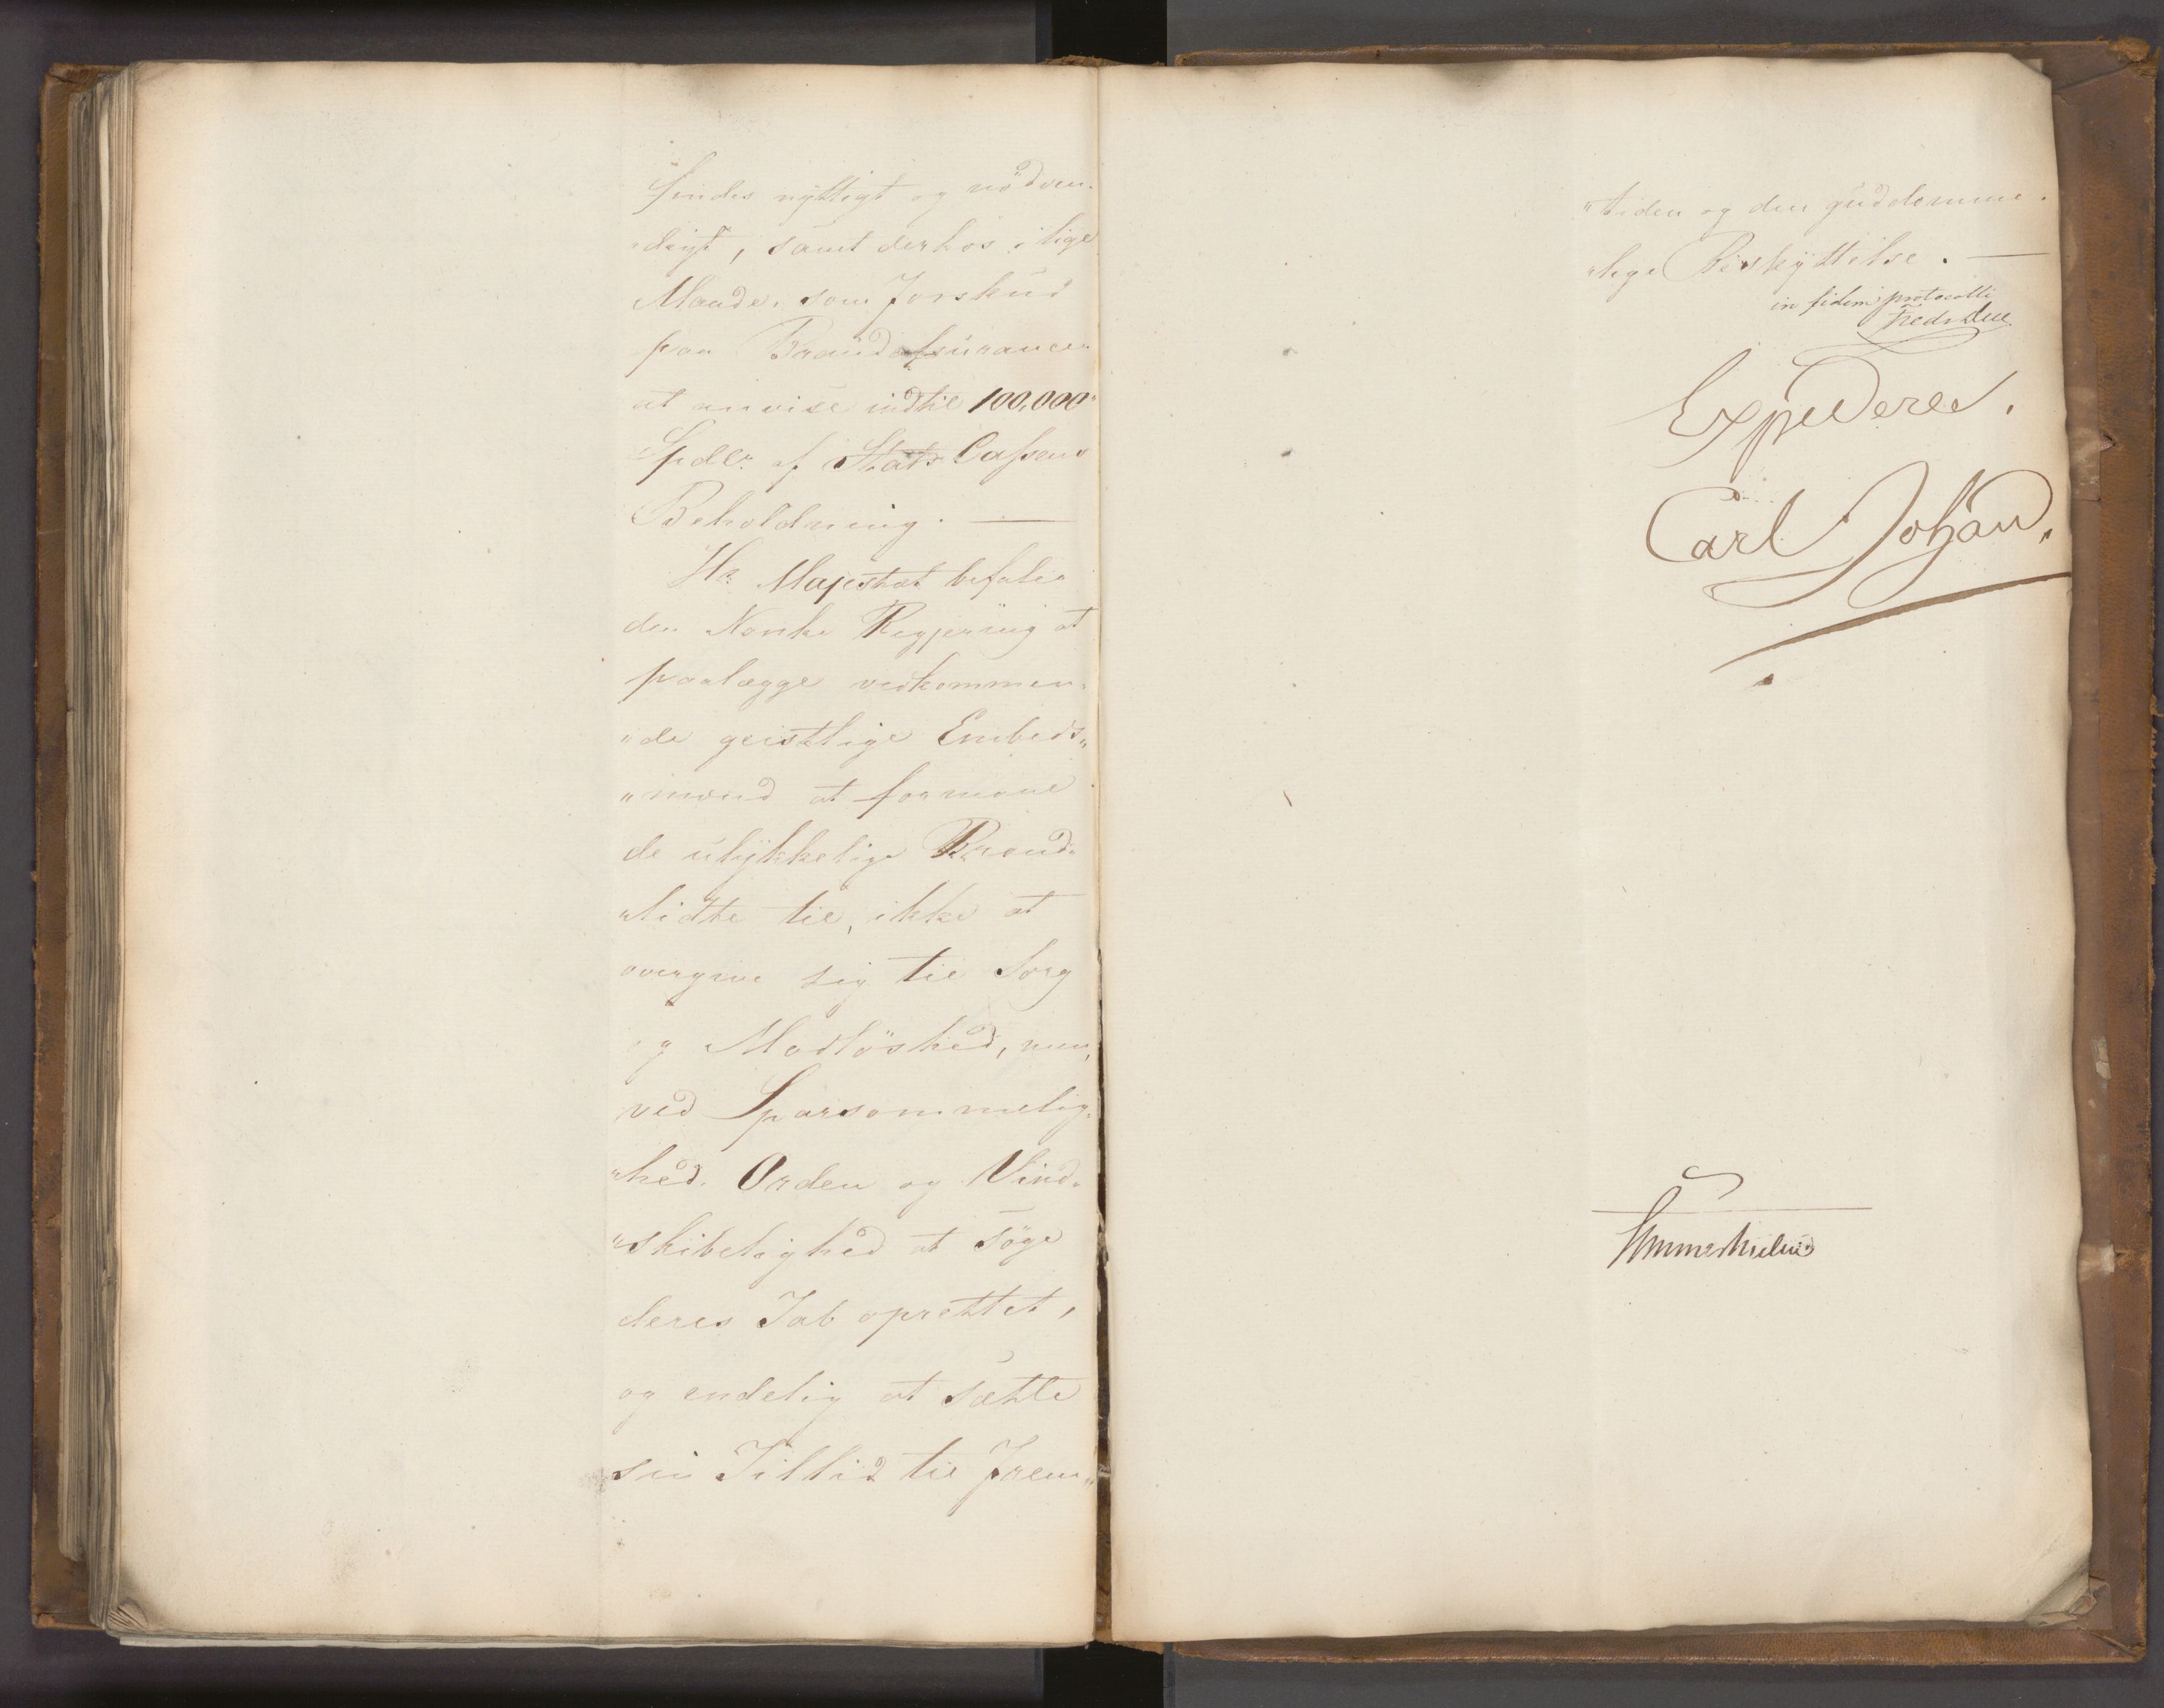 findes nyttigt og nödven„
„digt, samt derhos i lige
Maade, som Forskud
paa Brandassurancen
at anvise indtil 100,000
Spdlr. af Stats Cassens
Beholdning. —
Hs. Majestæt befaler
den Norske Regjering at
paalægge vedkommen„
„de geistlige Embeds„
„mænd at formane
de ulykkelige Brand„
„lidte til, ikke at
overgive sig til Sorg
og Modlöshed, men,
ved Sparsommelig„
„hed, Orden og Vind„
„skibelighed at söge
deres Tab oprettet,
og endelig at sætte
sin Tillid til Frem„
„tiden og den guddomme„
„lige Beskyttelse. —
in fidem protocolli
Fredr Due
Expederes.
Carl Johan.